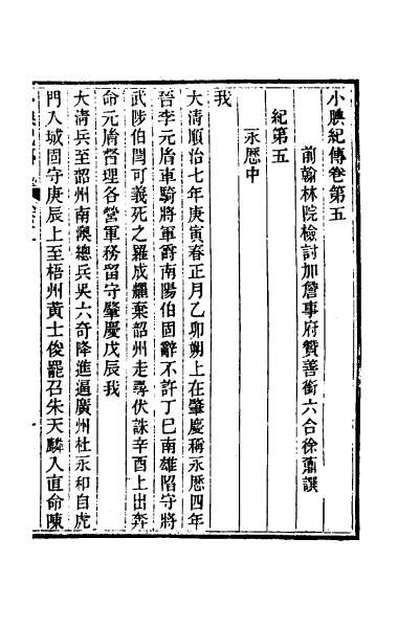 小腆紀傳卷第五
前翰林院檢討加詹事府贊善銜六合徐鼒譔
紀第五
永歷中
我
大清順治七年庚寅春正月乙卯朔上在肇慶稱永歷四年
晉李元胤車騎將軍爵南陽伯固辭不許丁巳南雄陷守將
武陟伯閆可義死之羅成耀棄韶州走尋伏誅辛酉上出奔
命元胤督理各營軍務留守肇慶戊辰我
大清兵至韶州南澳總兵吳六奇降進逼廣州杜永和自虎
門入城固守庚辰上至梧州黃士俊罷召朱天麟入直命陳